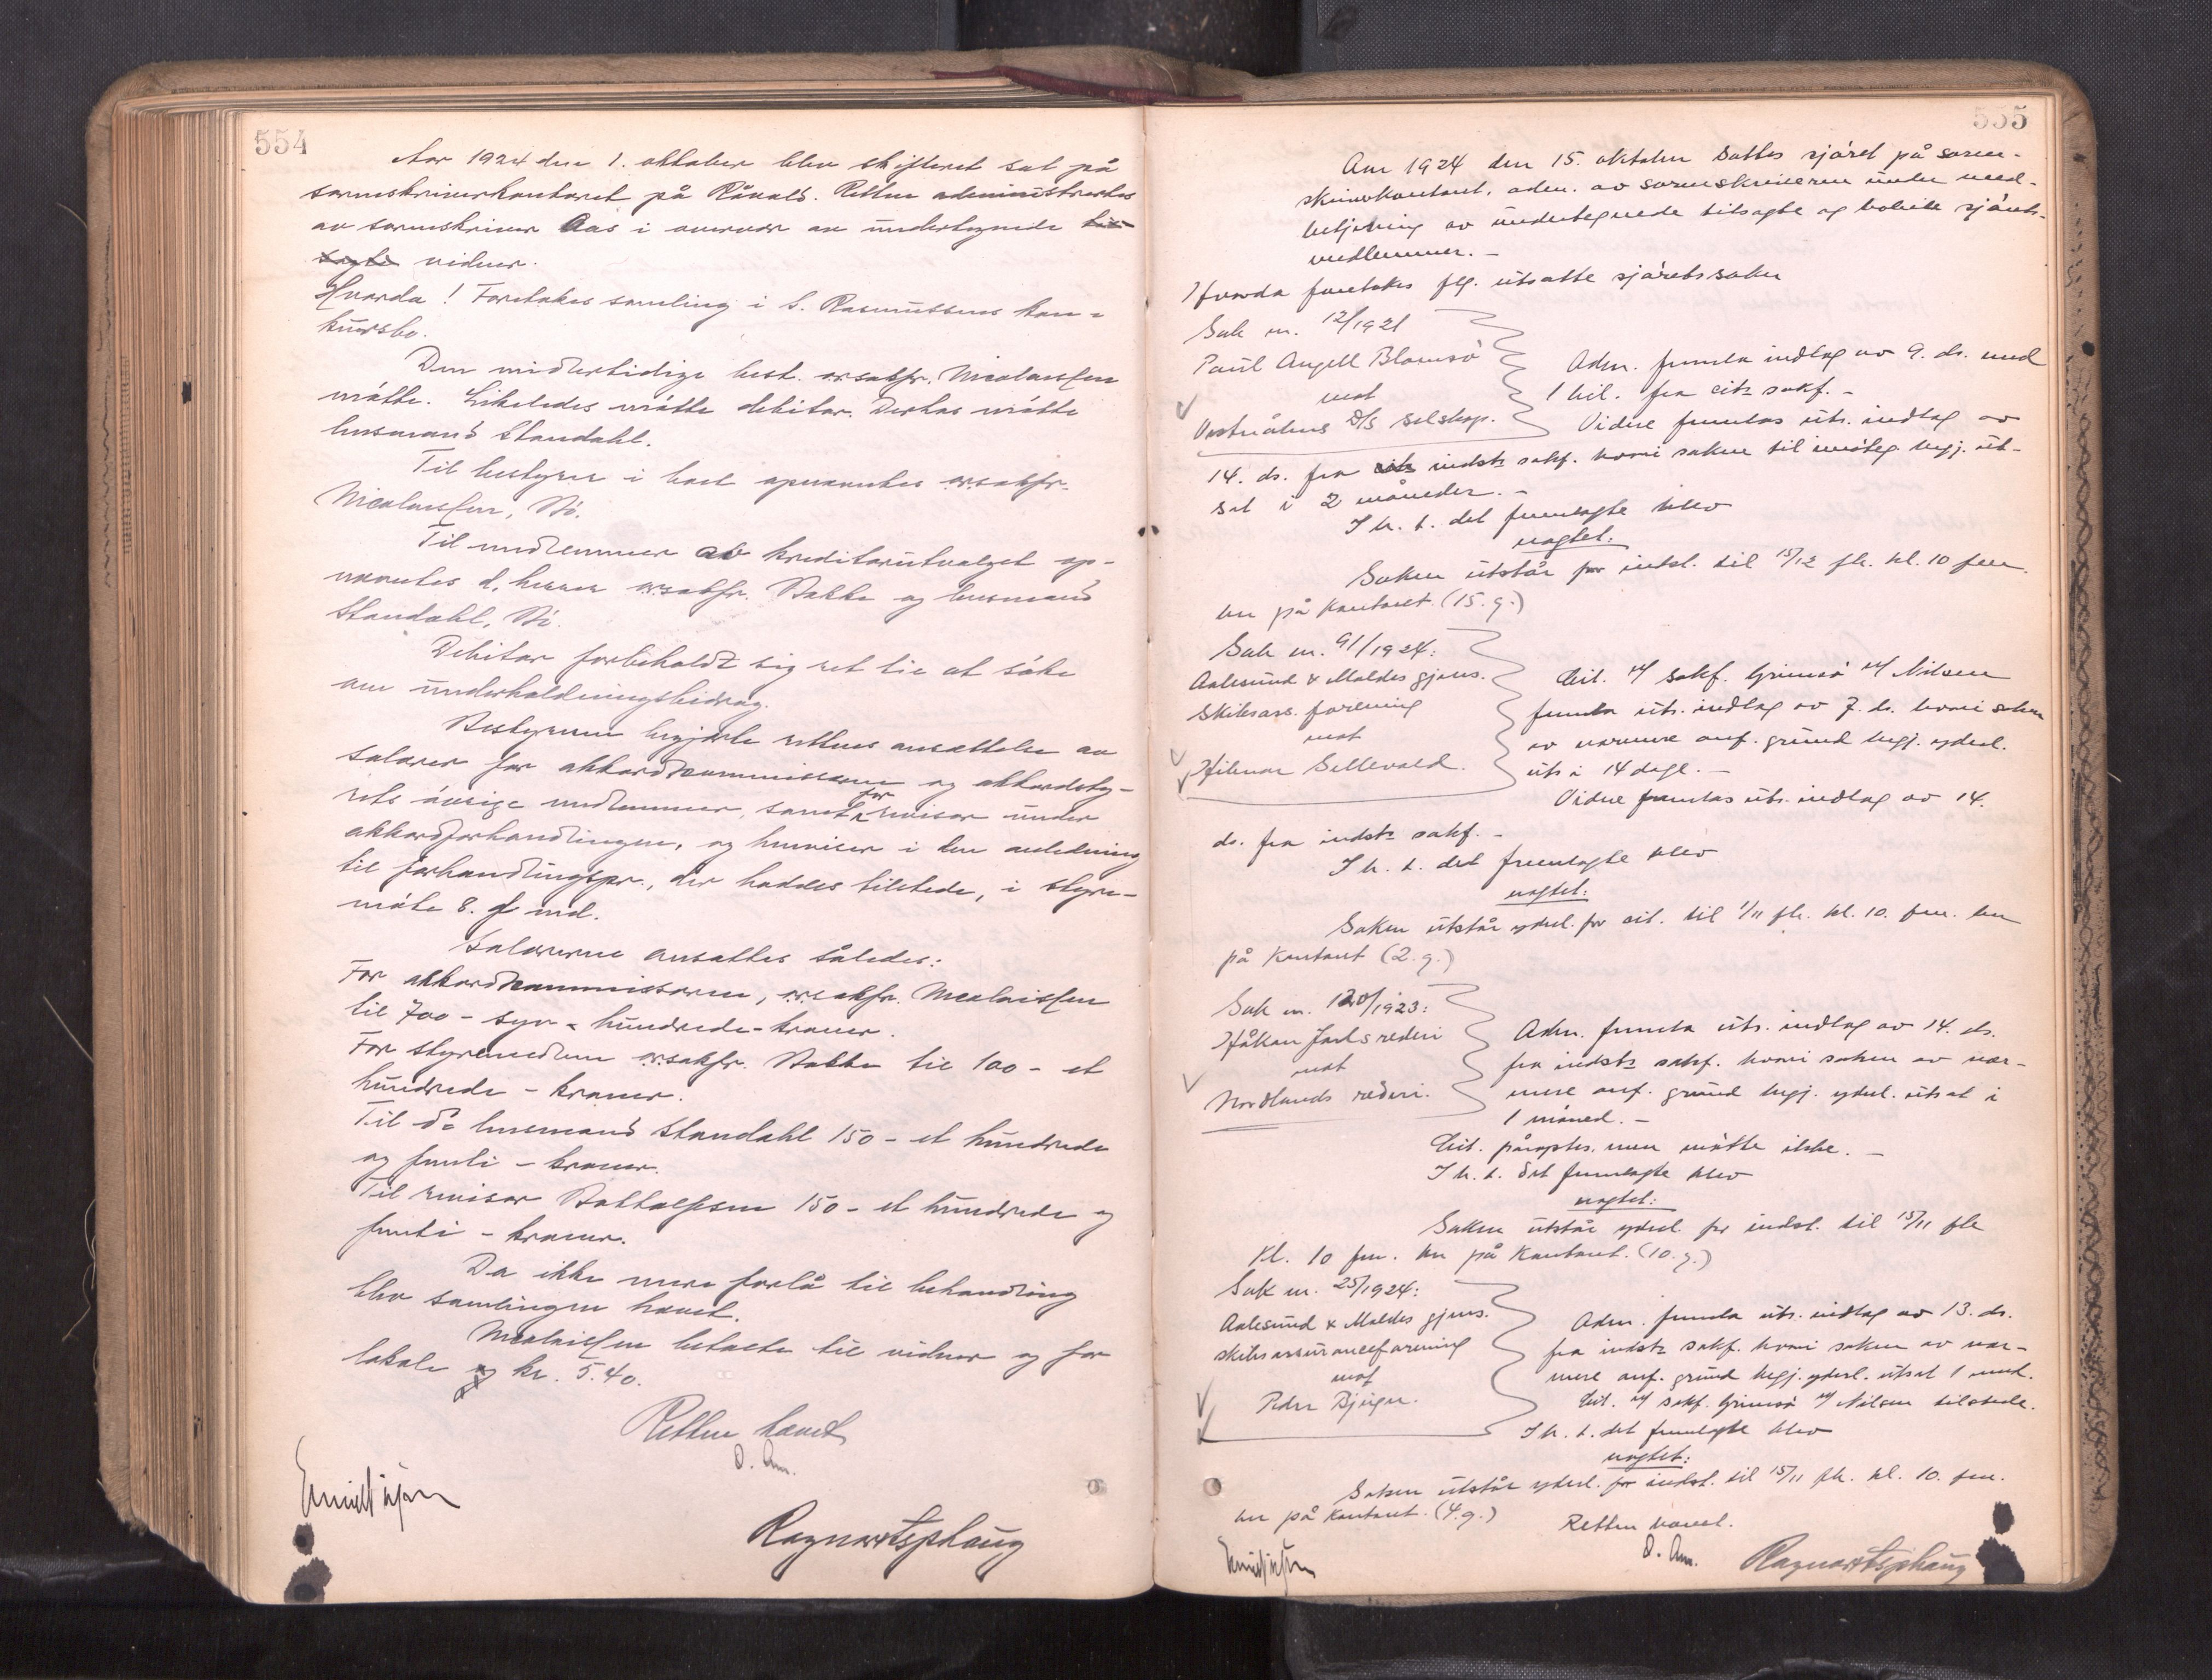 554
Aar 1924 den 1. oktober blev skifteret sat på
sorenskriverkontoret på Råvald. Retten administrertes
av sorenskriver Aas i overvær av undertegnede til-
sagte vidner.
Hvorda! Foretokes samling i S. Rasmussens kon-
kursbo.
Den midlertidige best. o.r.sakfr. Nicolaissen
møtte. Likeledes møtte debitor. Derhos møtte
lensmand Standahl.
Til bestyrer i boet opnævntes o.r.sakfr.
Nicolaissen, Vö.
Til medlemmer av kreditorutvalget op-
nævntes d, herrer o.r.sakfr. Stokke og lensmand
Standahl, Vö.
Debitor forbeholdt sig ret til at söke
om underholdningsbidrag.
Bestyreren begjærte rettens ansættelse av
salærer for akkordkommissæren og akkordsty-
rets övrige medlemmer, samt for revisor under
akkordforhandlingen, og henviser i den anledning
til forhandlingspr., der haddes tilstede, i styre-
möte 8. f md.
Salærerne ansattes således:
For akkordkommissæren, o.r.sakfr. Nicolaissen
til 700 - syv - hundrede - kroner.
For styremedlem o.r.sakfr. Stokke til 100 - et
hundrede - kroner.
Til do lensmand Standahl 150 - et hundrede
og femti - kroner.
Til revisor 150 - et hundrede og
femti - kroner.
Da ikke mere forlå til behandling
blev samlingen hævet.
Nicolaissen betalte til vidner og for
lokale og kr. 5.40.
Retten hævet
O. Aas.
Ragnar Tsphaug
555
Aar 1924 den 15. oktober sattes sjöret på soren-
skriverkontoret, adm. av sorenskriveren under med-
betjening av undertegnede tilsagte og beviste sjörets-
medlemmer. -
Hvorda foretokes flg. utsatte sjöretssaker
Sak nr. 12/1921
Paul Angell Blomsö
mot
Vestnäshus D/S selskap.
Adm. fremla indlæg av 9. ds. med
1 bil. fra cits sakf. -
Videre fremlas uts. indlæg av
14. ds. fra cits indsts sakf. hvori saken til imöteg. begj. ut-
sat i 2 måneder. -
I h. t. det fremlagte blev
vogtet:
Saken utstår for indst. til 15/12 fk. kl. 10 fm.
her på kontoret. (15. g.)
Sak nr. 91/1924:
Aalesund & Moldes gjens.
Skibsass. forening
mot
Hilmar Sellevold.
Cit. v/ sakf. Grimsö v/ Nilsen
fremla uts. indlæg av 7. ds. hvori saken
av nærmere anf. grund begj. yderl.
uts. i 14 dage. -
Videre fremlas uts. indlæg av 14.
ds. fra indsts sakf. -
I h. t. det fremlagte blev
vogtet:
Saken utstår yderl. for cit. til 1/11 fk. kl. 10. fm. her
på kontoret (2. g.)
Sak nr. 120/1923:
Håkon Jarls rederi
mot
Nordlands rederi.
Adm. fremla uts. indlæg av 14. ds.
fra indsts sakf. hvori saken av nær-
mere anf. grund begj. yderl. utsat i
1 måned. -
Cit. påroptes. men mötte ikke. -
I h. t. det fremlagte blev
vogtet:
Saken utstår yderl. for indst. til 15/11 fk
Kl. 10 fm. her på kontoret. (10. g.)
Sak nr. 25/1924:
Aalesund & Moldes gjens.
skibsassuranceforening
mot
Peder Bjerger.
Adm. fremla uts. indlæg av 13. ds.
fra indsts sakf. hvori saken av nær-
mere anf. grund begj. yderl. utsat 1 mnd.
Cit. v/ sakf. Grimsö v/ Nilsen tilstede.
I h. t. det fremlagte blev
vogtet:
Saken utstår yderl. for indst. til 15/11 fk. kl. 10. fm.
her på kontoret. (4. g.)
Retten hævet.
O. Aas.
Ragnar Tsphaug